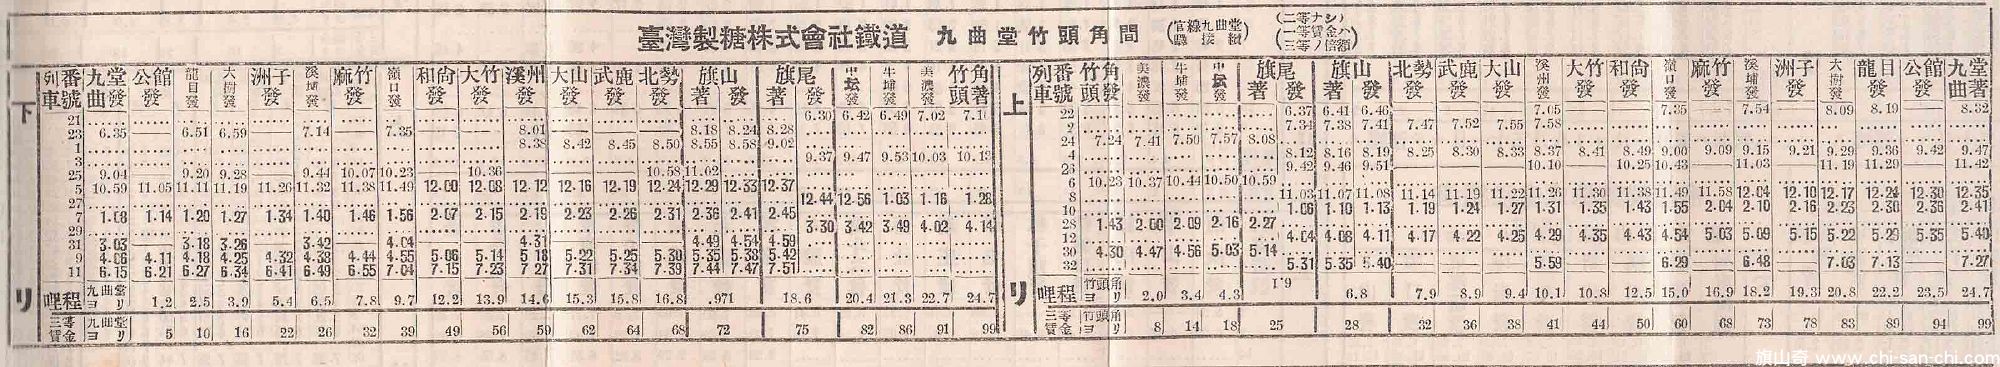 臺灣製糖株式會社鐵道 九曲堂竹頭角間 (官線九曲堂驛接續) (二等ナシ) (一等賃金ハ) (三等ノ倍額)
下リ
列車番號 九曲堂發 公館發 龍目發 大樹發 洲子發 溪埔發 麻竹發 嶺口發 和尙發 大竹發 溪州發 大山發 武鹿發 北勢發 旗山著 發 旗尾著 發 中坛發 牛埔發 美濃發 竹頭角著
21 6.30 6.42 6.49 7.02 7.1
23 6.35 — 6.51 6.59 — 7.14 — 7.35 — — 8.01 — — — 8.18 8.24 8.28
1 8.38 8.42 8.45 8.50 8.55 8.58 9.02
3 9.37 9.47 9.53 10.03 10.13
25 9.04 — 9.20 9.28 — 9.44 10.07 10.23 — 10.36 — — — 10.58 11.02
5 10.59 11.05 11.11 11.19 11.26 11.32 11.38 11.49 12.00 12.08 12.12 12.16 12.19 12.24 12.29 12.33 12.37
27 12.44 12.56 1.03 1.16 1.28
7 1.08 1.14 1.20 1.27 1.34 1.40 1.46 1.56 2.07 2.15 2.19 2.23 2.26 2.31 2.36 2.41 2.45
29 3.30 3.42 3.49 4.02 4.14
31 3.03 — 3.18 3.26 — 3.42 — 4.04 — — 4.31 — — — 4.49 4.54 4.59
9 4.06 4.11 4.18 4.25 4.32 4.38 4.44 4.55 5.06 5.14 5.18 5.22 5.25 5.30 5.35 5.38 5.42
11 6.15 6.21 6.27 6.34 6.41 6.49 6.55 7.04 7.15 7.23 7.27 7.31 7.34 7.39 7.44 7.47 7.51
哩程 九曲堂ヨリ 1.2 2.5 3.9 5.4 6.5 7.8 9.7 12.2 13.9 14.6 15.3 15.8 16.8 .971 18.6 20.4 21.3 22.7 24.7
三等賃金 九曲堂ヨリ 5 10 16 22 26 32 39 49 56 59 62 64 68 72 75 82 86 91 99
上リ
列車番號 竹頭角發 美濃發 牛埔發 中坛發 旗尾 發 旗山著 發 北勢發 武鹿發 大山發 溪州發 大竹發 和尙發 嶺口發 麻竹發 溪埔發 洲子發 大樹發 龍目發 公館發 九曲堂著
22 6.37 6.41 6.46 — — — 7.05 — — 7.35 — 7.54 — 8.09 8.19 — 8.32
2 7.34 7.38 7.41 7.47 7.52 7.55 7.58
24 7.24 7.41 7.50 7.57 8.08
4 8.12 8.16 8.19 8.25 8.30 8.33 8.37 8.41 8.49 9.00 9.09 9.15 9.21 9.29 9.36 9.42 9.47
26 9.42 9.46 9.51 — — — 10.10 — 10.25 10.43 — 11.03 — 11.19 11.29 — 11.42
6 10.23 10.37 10.44 10.50 10.59
8 11.03 11.07 11.08 11.14 11.19 11.22 11.26 11.30 11.38 11.49 11.58 12.04 12.10 12.17 12.24 12.30 12.35
10 1.06 1.10 1.13 1.19 1.24 1.27 1.31 1.35 1.43 1.55 2.04 2.10 2.16 2.23 2.30 2.36 2.41
28 1.43 2.00 2.09 2.16 2.27
12 4.04 4.08 4.11 4.17 4.22 4.25 4.29 4.35 4.43 4.54 5.03 5.09 5.15 5.22 5.29 5.35 5.40
30 4.30 4.47 4.56 5.03 5.14
32 5.31 5.35 5.40 — — — 5.59 — — 6.29 — 6.48 — 7.03 7.13 — 7.27
哩程 竹頭角ヨリ 2.0 3.4 4.3 6.8 7.9 8.9 9.4 10.1 10.8 12.5 15.0 16.9 18.2 19.3 20.8 22.2 23.5 24.7
三等賃金 竹頭角ヨリ 8 14 18 25 28 32 36 38 41 44 50 60 68 73 78 83 89 94 99
旗山奇 www.chi-san-chi.com